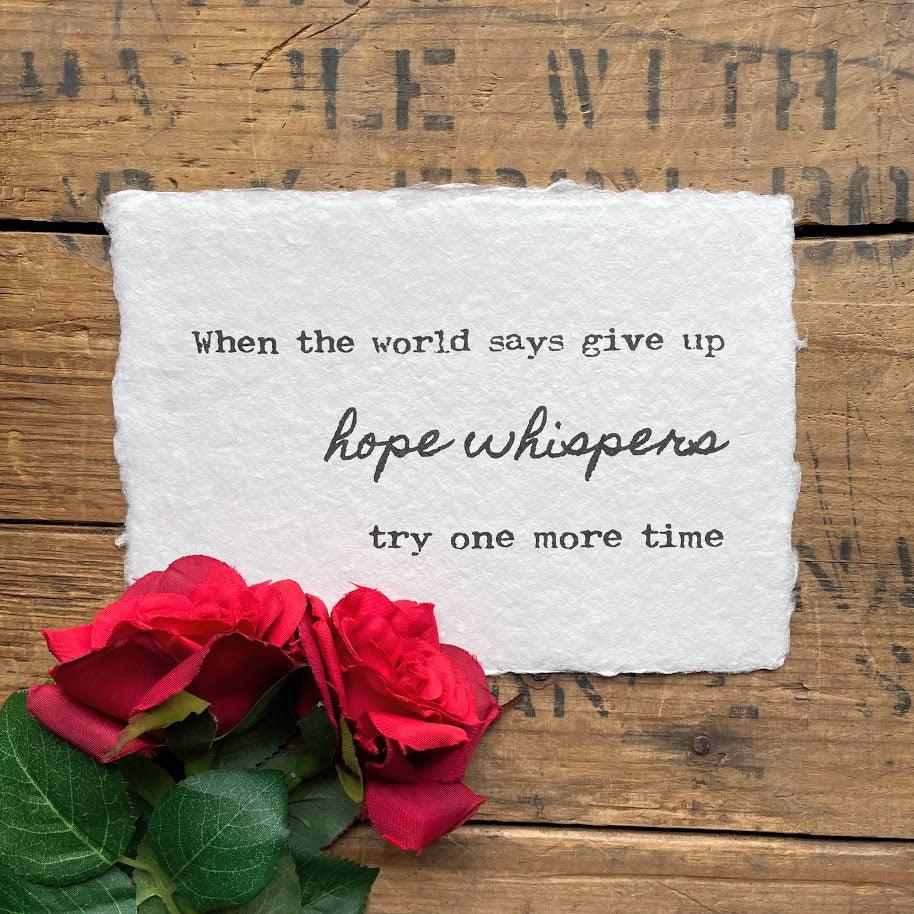 WITH
When the world says give up
hope whispers
try one more time